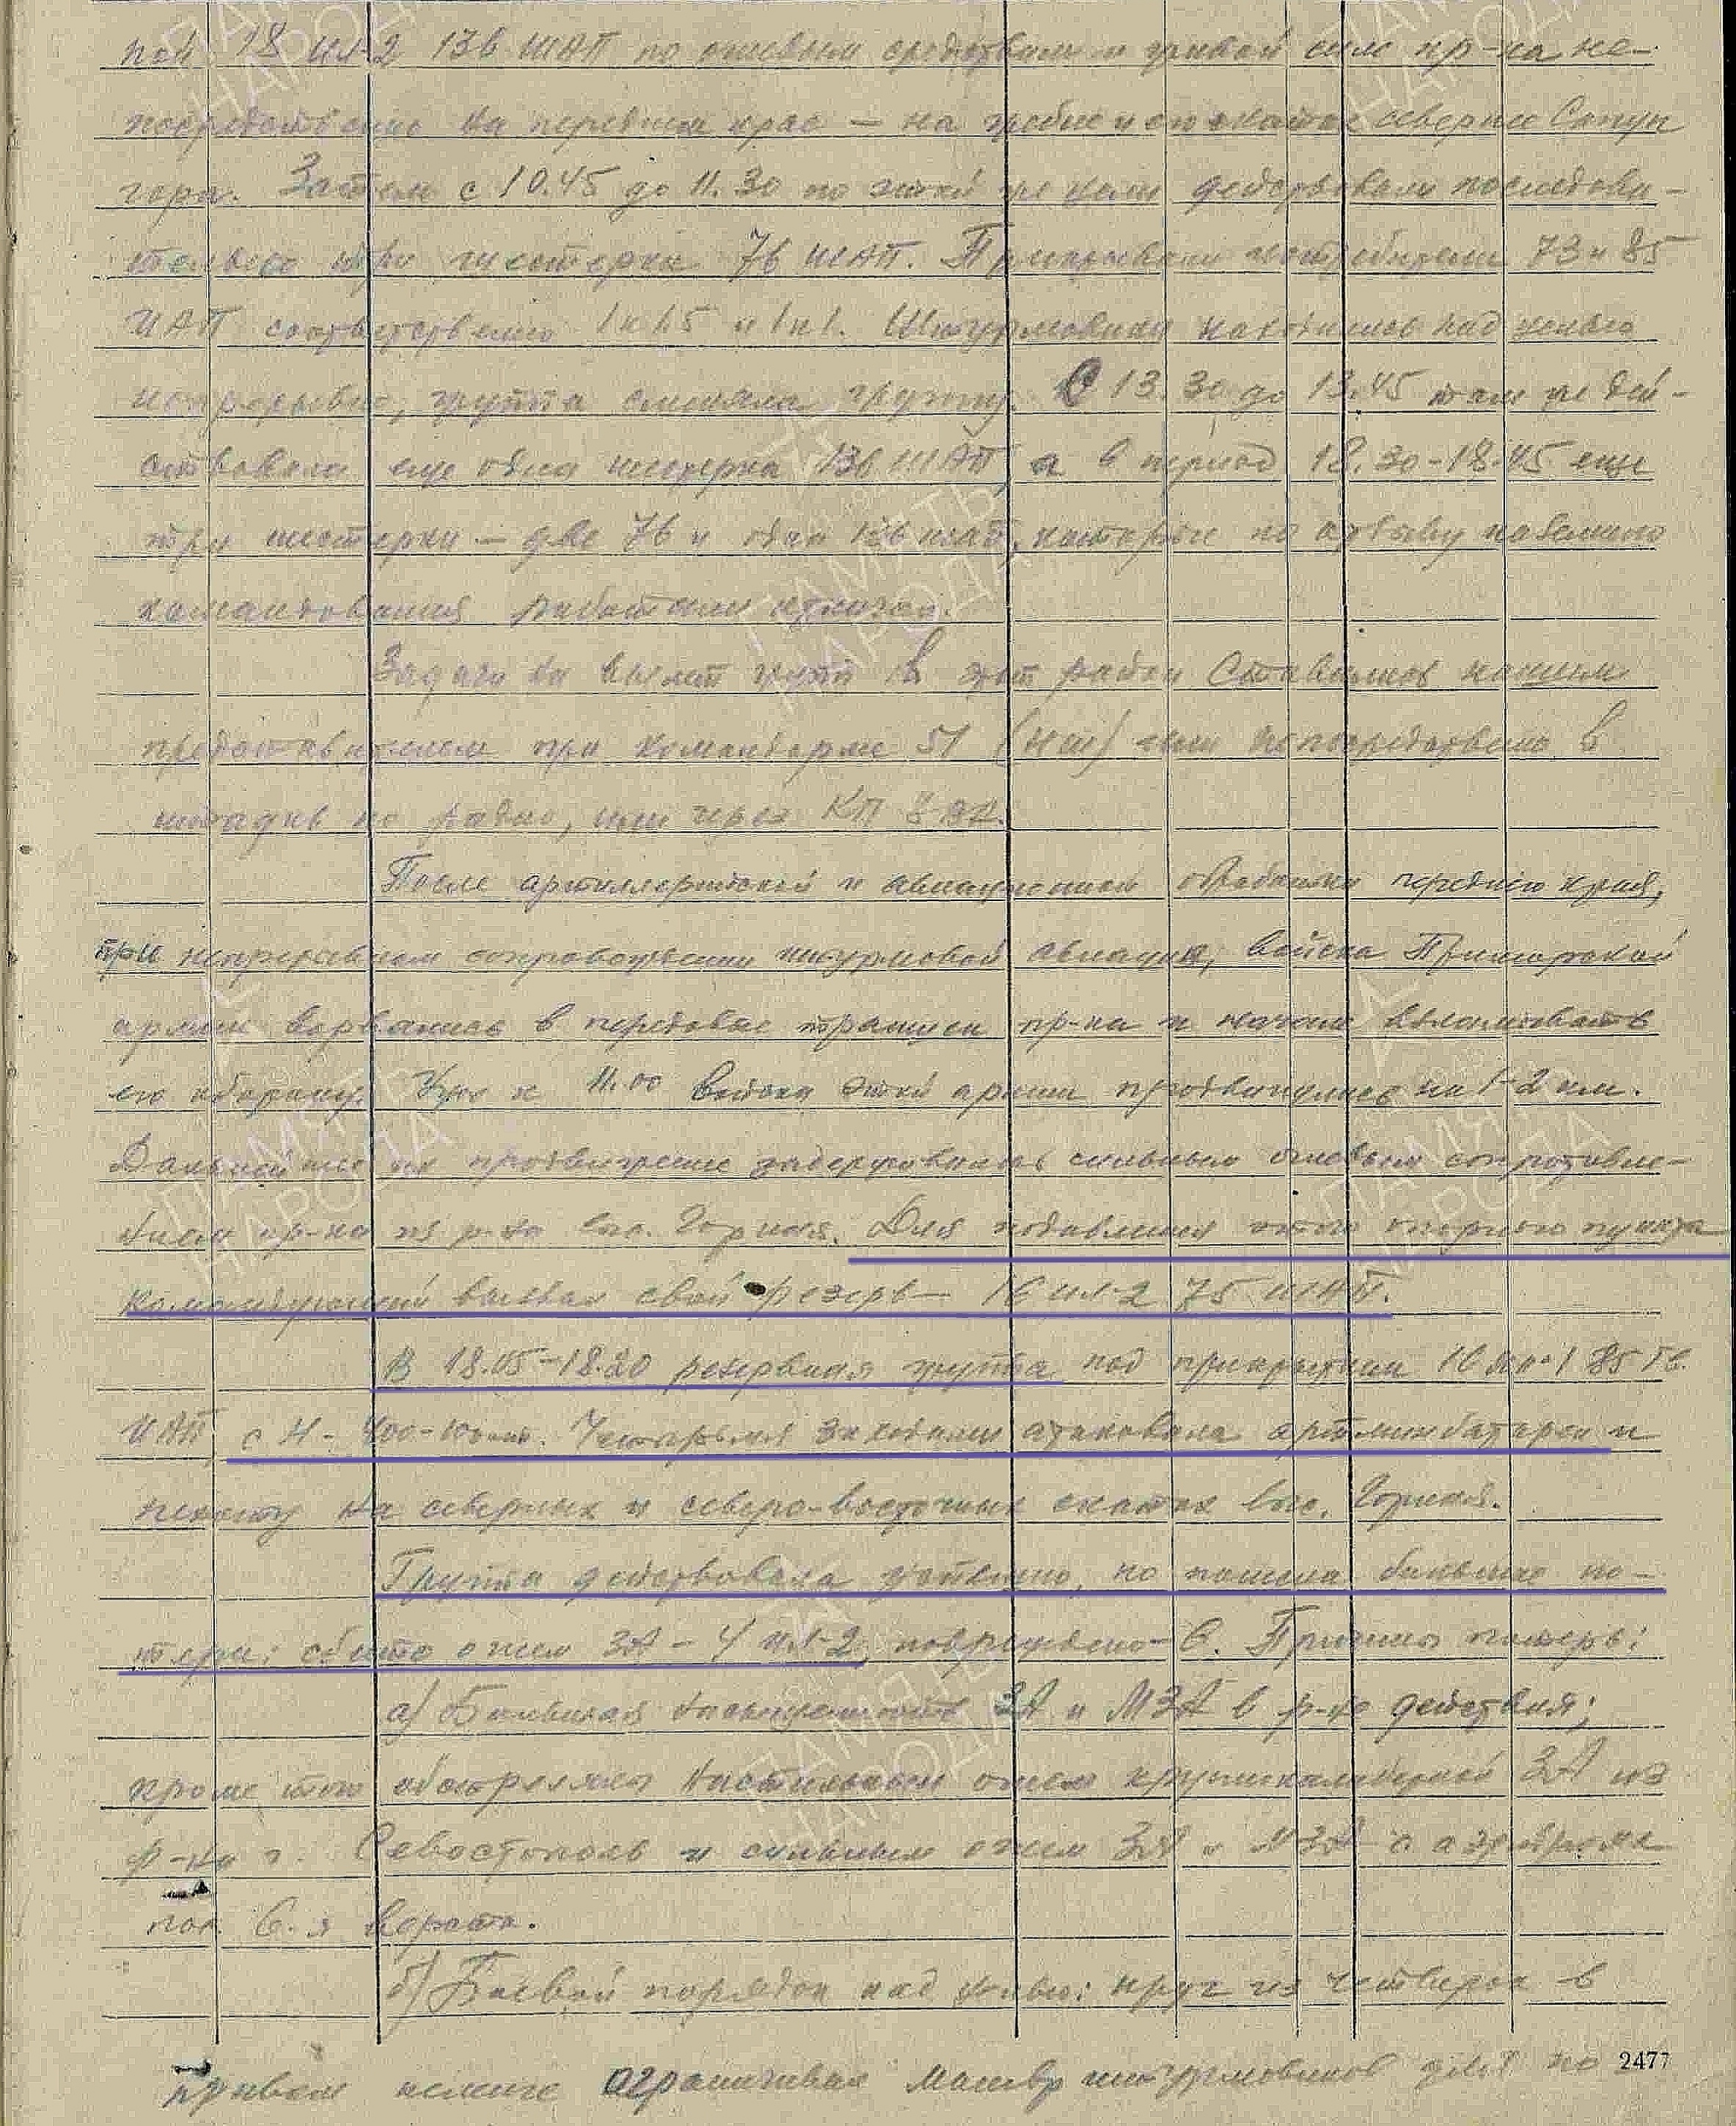 пой 18 ил-2 136 ШАП по огневым средствам и живой силе пр-ка не-
посредственно на переднем крае — на гребне и скатах севернее Сапун
гора. Затем с 10.45 до 11.30 по этой же цели действовали последова-
тельно три шестерки 76 ШАП. Прикрывали истребители 73 и 85
ИАП соответственно 1 и 1.5 и 1 и 1. Штурмовики находились над целью
непрерывно, группа сменяла группу. С 13.30 до 13.45 там же дей-
ствовала еще одна шестерка 136 ШАП, а в период 18.30-18.45 еще
три шестерки — две 76 и одна 136 шап, которые по отзыву наземного
командования работали отлично.
Задачи на вылет групп в этот район ставились нашим
представителем при командарме 51 (НШ) или непосредственно в
штадив по радио, или через КП 8 ВА.
После артиллерийской и авиационной обработки переднего края,
при непрерывном сопровождении штурмовой авиации, войска Приморской
армии ворвались в передовые траншеи пр-ка и начали взламывать
его оборону. Уже к 11.00 войска этой армии продвинулись на 1-2 км.
Дальнейшее их продвижение задерживалось сильным огневым сопротивле-
нием пр-ка из р-на выс. Горная. Для подавления этого опорного пункта
командующий вызвал свой резерв — 16 ил-2 75 ШАП.
В 18.05-18.20 резервная группа под прикрытием 16 85 Гв.
ИАП с Н- Четырьмя заходами атаковала артминбатареи и
пехоту на северных и северо-восточных скатах выс. Горная.
Группа действовала успешно, но понесла большие по-
тери: сбито огнем ЗА — 4 ил-2, повреждено — 6. Причины потерь:
а) Большая насыщенность ЗА и МЗА в р-не действия;
кроме того обстрелял настильным огнем крупнокалиберной ЗА из
р-на г. Севастополь и сильным огнем ЗА и МЗА с аэродрома
пос. 6-я верста.
б) Боевой порядок над целью: круг из четверок в
правом ограничивал маневр штурмовиков для по
2477
ПАМЯТЬ НАРОДА